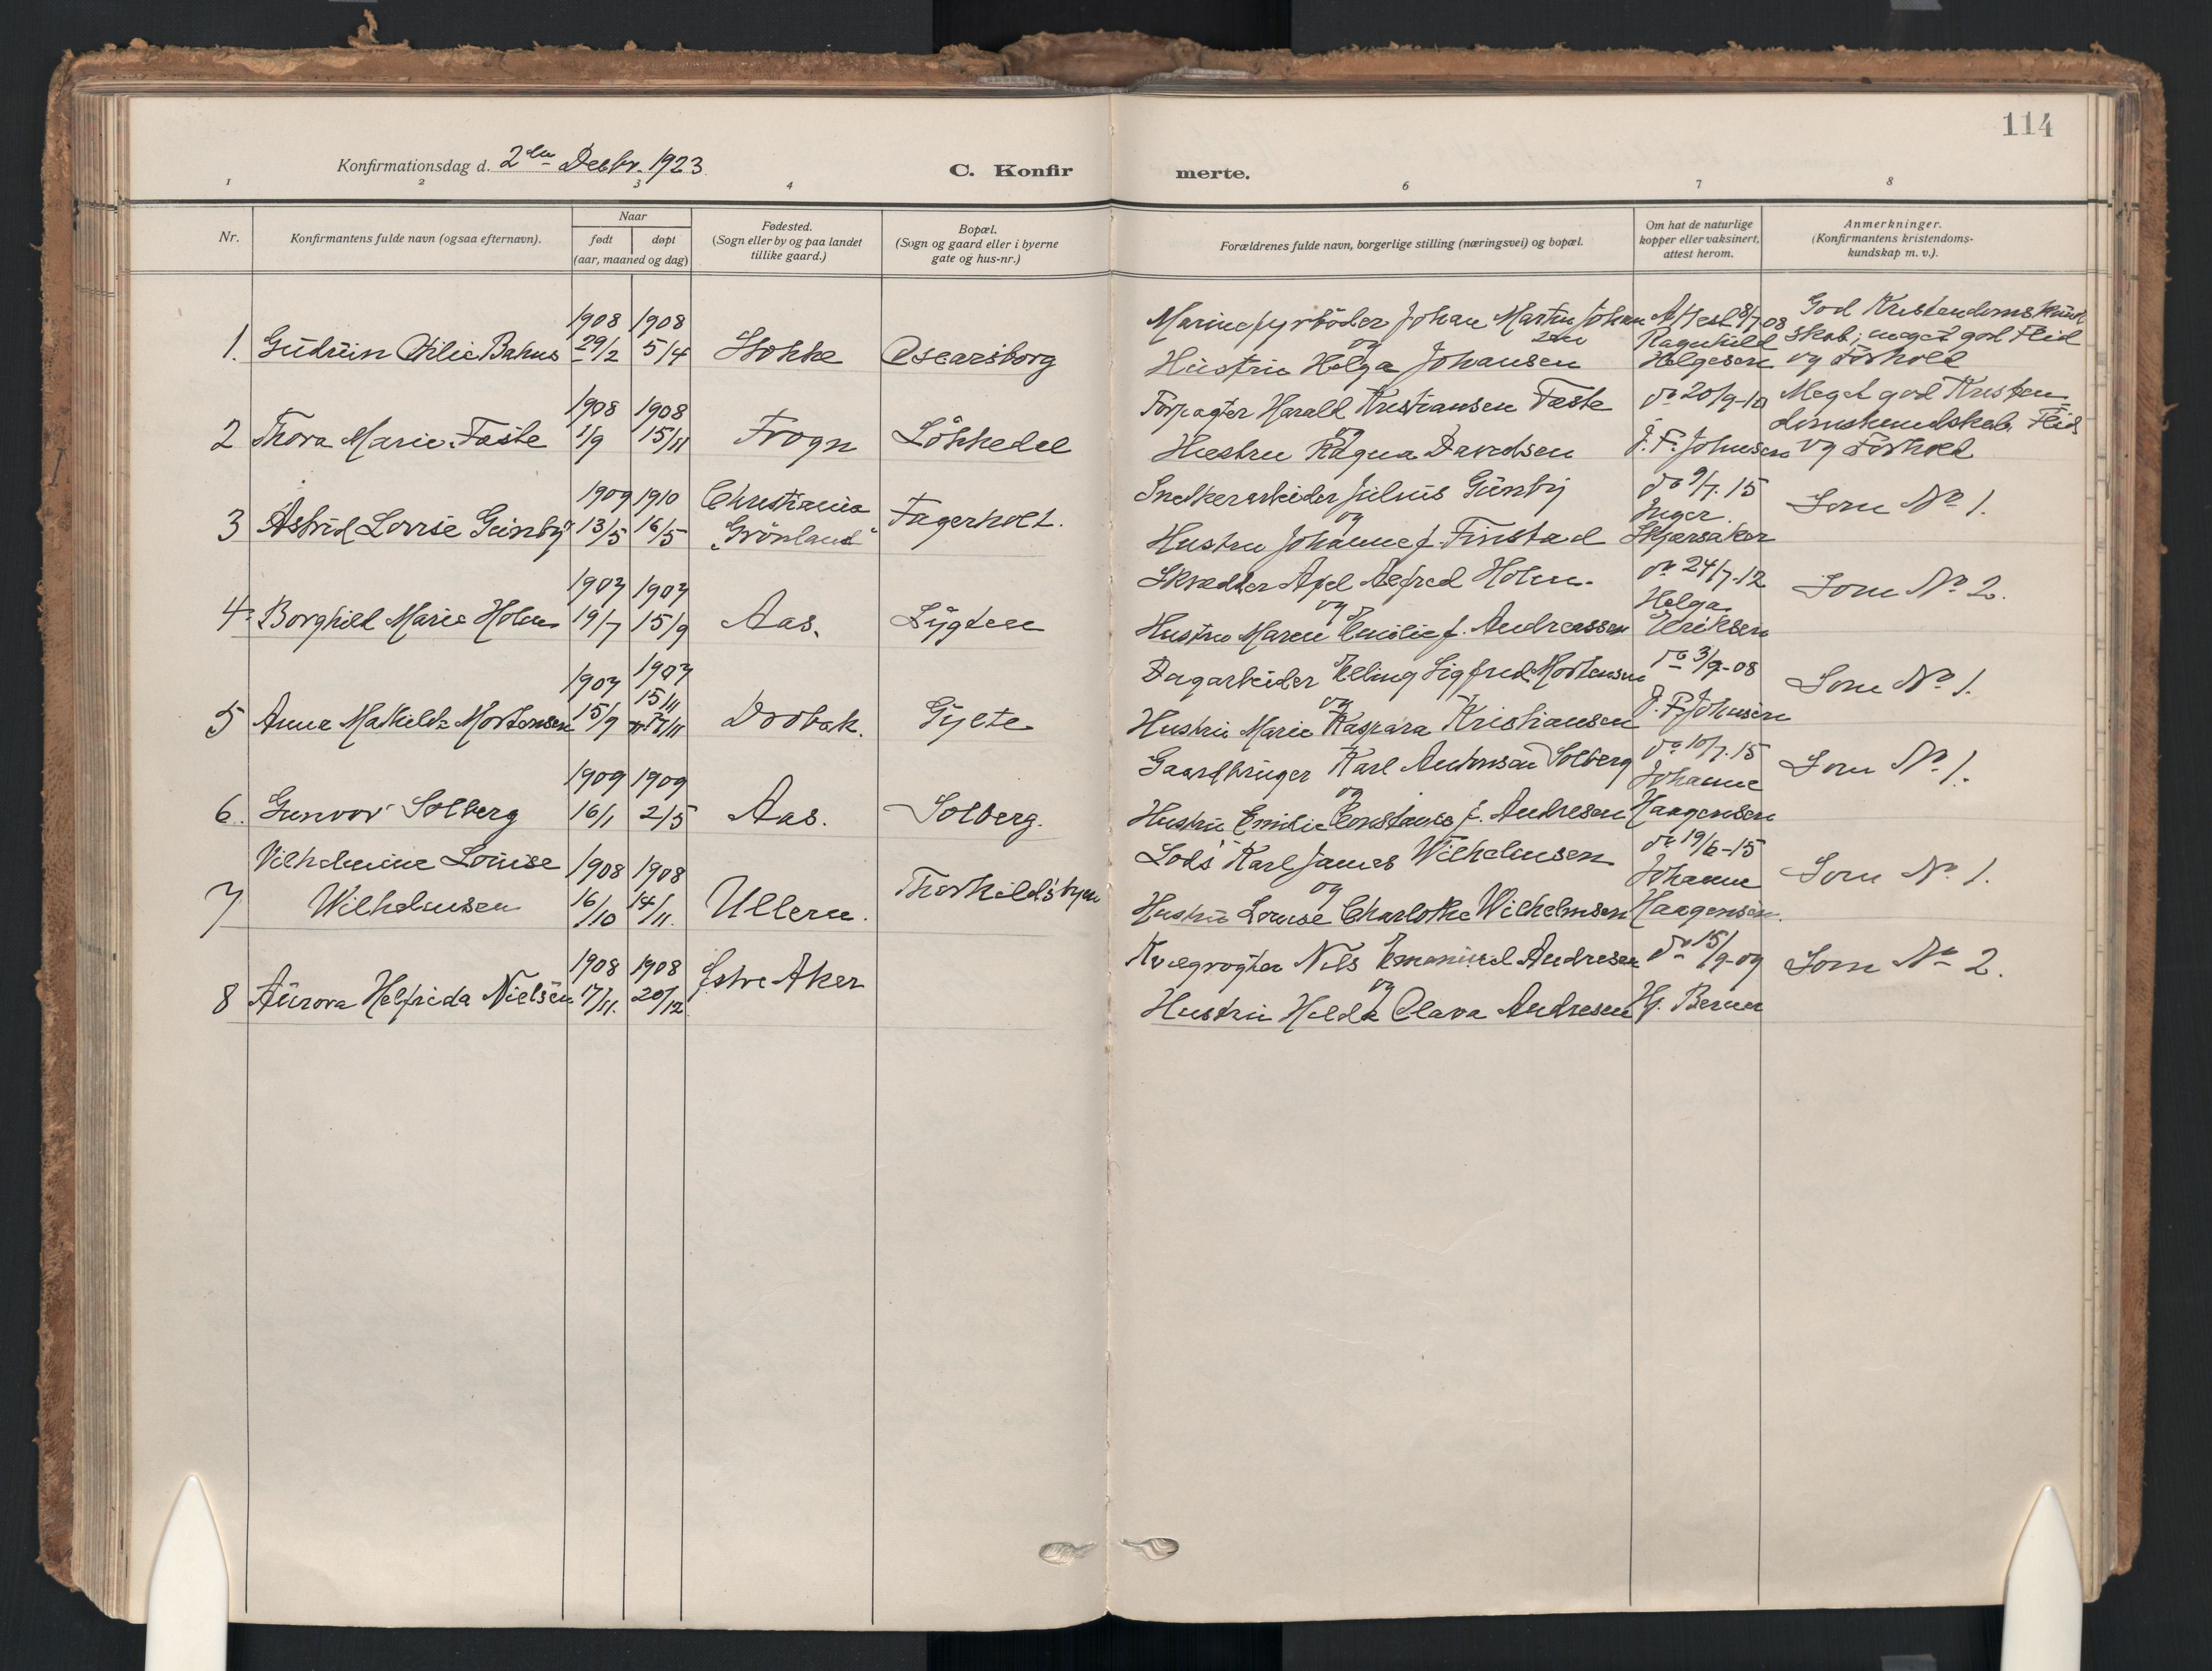 114
Konfirmationsdag d. 2den Decbr. 1923
C. Konfirmerte.
1 2 3 4 6 7 8
Nr.
Konfirmantens fulde navn (ogsaa efternavn).
Naar
født døpt
(aar, maaned og dag)
Fødested.
(Sogn eller by og paa landet
tillike gaard.)
Bopæl.
(Sogn og gaard eller i byerne
gate og hus-nr.)
Forældrenes fulde navn, borgerlige stilling (næringsvei) og bopæl.
Om hat de naturlige
kopper eller vaksinert,
attest herom.
Anmerkninger.
(Konfirmantens kristendoms-
kundskap m. v.).
1908 1908
1. Gudrun Otilie Bakus 29/2 5/4 Stokke Oscarsborg
Marinefyrböder Johan Martin Johan
sen
og
Hustru Helga Johansen
Attest 8/7-08
Ragnhild
Helgesen
God Kristendomskund
skab; meget god Flid
og Forhold
1908 1908
2 Thora Marie Faste 1/9 15/11 Frogn Lökkedel
Forpagter Harald Kristiansen Faste
og
Hustru Ragna Davidsen
do 20/9-10
J. F. Johnsen
Meget god Kristen-
domskundskab, Flid
og Forhold
1909 1910
3 Astrid Lovise Gunby 13/5 16/5 Christiania
"Grönland"
Fagerholt.
Snedkerarbeider Julius Gunby
og
Hustru Johanne f. Finstad
do 9/7. 15
Inger
Skjærsaker
Som No 1.
1907 1907
4. Borghild Marie Holm 19/7 15/9 Aas. Lygten
Skrædder Axel Alfred Holm.
og
Hustru Maren Emilie f. Andreassen
do 24/7-12
Helga
Eriksen
Som No 2.
1907 1907
15/11
5 Anna Mathilde Mortensen 15/9 17/11 Dröbak. Gylte
Dagarbeider Elling Sigfred Mortensen
og
Hustru Marie Kaspara Kristiansen
do 3/9-08
J. F. Johnsen
Som No 1.
1909 1909
6. Gunvor Solberg 16/1 2/5 Aas. Solberg.
Gaardbruger Karl Antonsen Solberg
og
Hustru Emilie Constance f. Andresen
do 10/7. 15
Johanne
Haagensen
Som No 1.
Vilhelmine Louise 1908 1908
7 Wilhelmsen 16/10 14/11. Ullern. Thorkildsbyen
Lods Karl James Wilhelmsen
og
Hustru Lovise Charlotte Wilhelmsen
do 19/6-15
Johanne
Haagensen.
Som No 1.
1908 1908
8 Aurora Helfrida Nielsen 17/11. 20/12 Östre Aker
Kvægrogter Nils Emanuel Andresen
og
Hustru Hilda Clara Andresen
do 15/9-09
H. Berner
Som No 2.